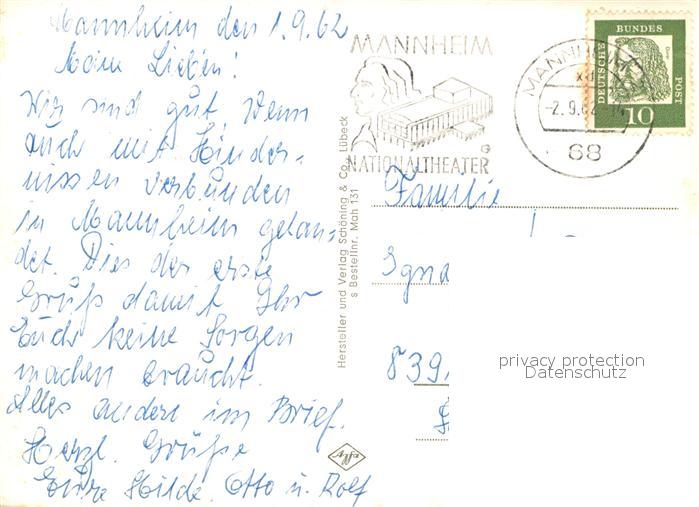 Mannheim den 1.9.62
Meine Lieben!
Wir sind gut, wenn
auch mit Hinder-
nissen verbunden
in Mannheim gelan-
det. Dies der erste
Gruß damit Ihr
Euch keine Sorgen
machen braucht.
Alles andere im Brief.
Herzl. Grüße
Eure Hilde, Otto u. Rolf
Hersteller und Verlag Schöning & Co., Lübeck
s Bestellnr. Mah 131
Agfa
MANNHEIM
NATIONALTHEATER
MANNH
-2.9.62
68
DEUTSCHE
BUNDES
POST
10
Familie
Igna
839
privacy protection
Datenschutz